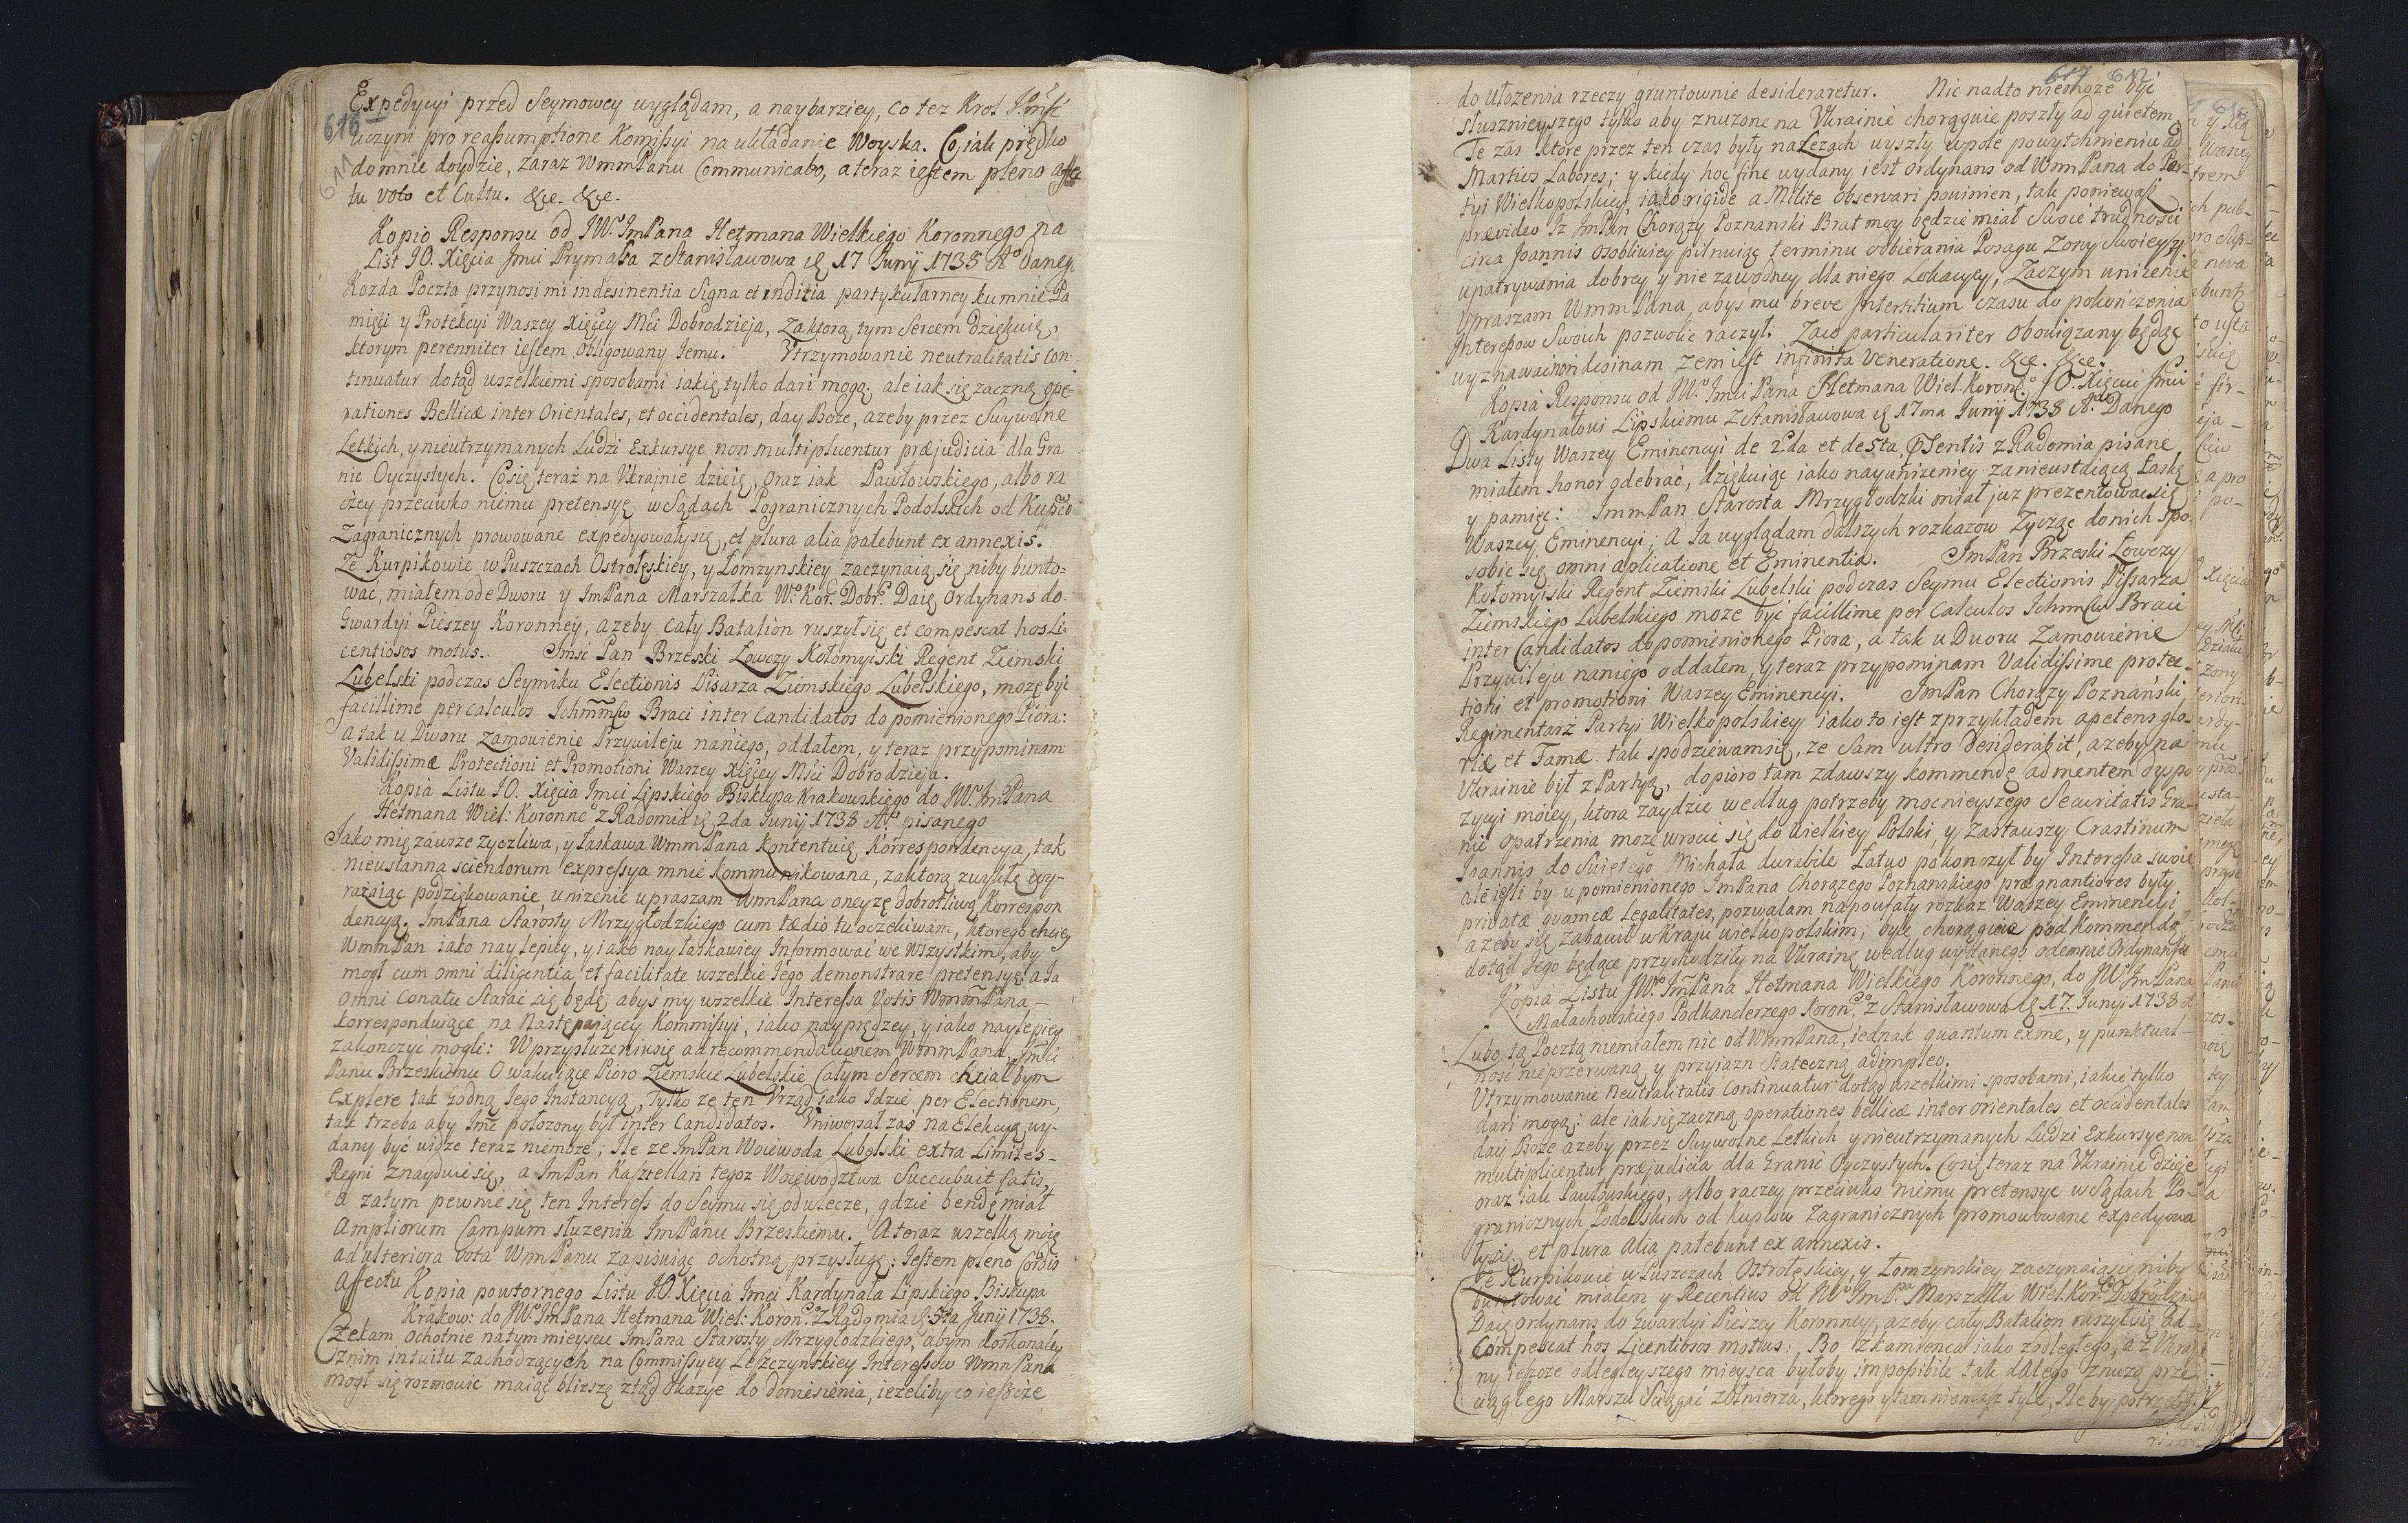 616
611
Expedycyi przed Seymowey wyglądam, a naybarziey, co tez Krol Jmść
uczyni pro reassumptione Komissyi na układanie Woyska. Co iak prędko
do mnie doydzie, zaraz WmmPanu Communicabo, a teraz iestem pleno affe
tu voto et Cultu. &c. &c.
Kopio Responsu od JW. ImPana Hetmana Wielkiego Koronnego na
List JO. Xięcia Jmći Prymassa z Stanisławowa 17 Junij 1738 Ao danego
Kozda Poczta przynosi mi indesinentia Signa et inditia partykularney ku mnie Pa
mięci y Protekcyi Waszey Xięcey Mći Dobrodzieja, za ktorą tym Sercem dziękuię,
ktorym perenniter iestem obligowany Jemu. Vtrzymowanie neutralitatis con
tinuatur dotąd wszelkiemi sposobami iakię tylko dari mogą; ale iak się zaczną ope
rationes Bellicæ inter Orientales, et occidentales, day Boze, azeby przez Swywolne
Letkich, y nieutrzymanych Ludzi Exkursye non multiplicentur præjudicia dla Gra
nic Oyczystych. Co się teraz na Vkrajnie dzieię, oraz iak Pawłowskiego, albo ra
czey przeciwko niemu pretensye w Sądach Pogranicznych Podolskich od Kupco
Zagranicznych prowowane expedyowały się, et plura alia patebunt ex annexis.
Ze Kurpikowie w Puszczach Ostrołęskiey, y Łomzynskiey zaczynaią się niby bunto=
wac, miałem od e Dworu y ImPana Marszałka W. Kor. Dobr. Daię Ordynans do
Gwardyi Pieszey Koronney, azeby cały Batalion ruszył się et compescat hos Li=
centiosos motus. Jmść Pan Brzeski Łowczy Kołomyiski Regent Ziemski
Lubelski podczas Seymiku Electionis Pisarza Ziemskiego Lubelskiego, może być
facillime per calculos Ichmmciw Braci inter Candidatos do pomienionego Piora:
a tak u Dworu zamowienie Przywileju nań iego, oddałem, y teraz przypominam
Validissimæ Protectioni et Promotioni Waszey Xięcey Mści Dobrodzieja.
Kopia Listu JO. Xięcia Imci Lipskiego Biskupa Krakowskiego do JW. ImPana
Hetmana Wiel: Koronne z Radomia 2da Junij 1738 A. pisanego
Jako mię zawsze zyczliwa, y łaskawa WmmPana Kontentuię Korrespondencya, tak
nieustanna sciendorum expressya mnie kommunikowana, za ktorą zwykłe wy-
rażaiąc podziękowanie, unizenie upraszam WmmPana oney zę dobrotliwą Korrespon
dencyą. ImPana Starosty Mrzygłodzkiego cum tædio tu oczekiwam, ktorego chciey
WmmPan iako naylepiey, y iako nayłaskawiey Informować we wszystkim, aby
mogł cum omni diligentia, et facilitate wszelkie Jego demonstrare pretensye, a Ja
omni conatu Starać się będę, abyśmy wszelkie Interessa Votis WmmPana -
korresponduiące na Następuiącey Kommissyi, iako nayprędzey, y iako naylepiey
zakończyć mogli: W przysłuzeniu się ad recommendationem WmmPana, Jmći
Panu Brzeskiemu O wakuiące Pioro Ziemskie Lubelskie Całym Sercem chciałbym
explere tak Godną Jego Instancyą, Tylko ze ten Vrząd iako Idzie per Electionem,
tak trzeba aby Imć połozony był inter Candidatos. Vniwersał zas na Elekcyą wy-
dany być widze teraz niemoze; Ile ze ImPan Woiewoda Lubelski extra Limites -
Regni znayduie się, a ImPan Kasztellan tegoz Woiewodztwa Succubuit fatis,
a zatym pewnie się ten Interess do Seymu się odwlecze, gdzie bendę miał
Ampliorum Campum słuzenia ImPanu Brzeskiemu. A teraz wszelką moię
ad ulteriora vota WmmPanu zapisuiąc ochotną przysługę; Jestem pleno Cordis
Affectu Kopia powtornego Listu JO. Xięcia Imci Kardynała Lipskiego Biskupa
Krakow: do JW. ImPana Hetmana Wiel: Koron. z Radomia 5ta Junij 1738.
Czekam ochotnie na tym mieyscu ImPana Starosty Mrzygłodzkiego, abym doskonaley
z nim intuitu zachodzących na Commissyey Leszczynskiey Interessow WmmPana
mogł się rozmowic maiąc blizszą ztąd okazye do doniesienia, ieżeliby co ieszcze
617 612
do ułozenia rzeczy gruntownie desideraretur. Nic nadto niemoże być
słusznieyszego tylko aby znuzone na Vkrainie chorągwie poszły ad quietem,
Te zas ktore przez ten czas były na Lezach wyszły w pole po wytchnieniu ad
Martios Labores; y kiedy hoc fine wydany iest ordynans od WmmPana do Par-
tyi Wielkopolskiey, iako rigide a Milite observari powinien, tak poniewaz
prævideo Iz ImPan Chorązy Poznanski Brat moy będzie miał Swoie trudności
circa Joannis osobliwiey pilnuiąc terminu odbierania Posagu Zony Swoiey, y
upatrywania dobrey y nie zawodney dla niego Lokacyey, Zaczym unizenie
Vpraszam WmmPana, abys mu breve Interstitium czasu do pokończenia
Interessow Swoich pozwolic raczył. Zaco particulariter obowiązany będąc
wyznawać non desinam zem iest infinita Veneratione. &c. &c.
Kopia Responsu od JW. Imći Pana Hetmana Wiel. Koron. JO. Xięciu Jmći
Kardynałowi Lipskiemu z Stanisławowa 17ma Junij 1738 A. Danego
Dwa Listy Waszey Eminencyi de 2da et de 5ta, Psentis z Radomia pisane
miałem honor odebrać, dziękuiąc iako nayuniżeniey za nieustaiącą Łaskę
y pamięc: ImmPan Starosta Mrzygłodzki miał juz prezentowac się
Waszey Eminencyi; a Ja wyglądam dalszych rozkazow Zycząc do nich spo
sobic się omni aplicatione et Eminentia. ImPan Brzeski Łowczy
Kołomyiski Regent Ziemski Lubelski podczas Seymu Electionis Pissarza
Ziemskiego Lubelskiego moze być facillime per Calculos Ichmciw Braci
inter Candidatos do pomienionego Piora, a tak u Dworu Zamowienie
Przywileju na niego oddałem, y teraz przypominam Validissime protec-
tioni et promotioni Waszey Eminencyi. ImPan Chorązy Poznański
Regimentarz Partyi Wielkopolskiey iako to iest z przykładem apetens glo-
riæ et Famæ. tak spodziewam się, ze sam ultro desiderabit, azeby na
Vkrainie był z Partyą, dopioro tam zdawszy kommendę ad mentem dyspo
zycyi moiey, ktora zaydzie według potrzeby mocnieyszego Securitatis Gra=
nic opatrzenia moze wrocić się do Wielkiey Polski, y Zastawszy Crastinum
Joannis do Swiętego Michała durabile Łatwo pokonczył by Interessa swoie
ale iesli by u pomienionego ImPana Chorązego Poznanskiego prægnantiores były
privatæ quamcæ Legalitates, pozwalam na poufały rozkaz Waszey Eminencyi
azeby się zabawił w Kraju wielkopolskim; byle chorągwie pod Kommendą
dotąd Jego będące przychodziły na Vkrainę według wydanego odemnie Ordynansu
Kopia Listu JW. ImPana Hetmana Wielkiego Koronnego, do JW. ImPana
Małachowskiego Podkanderzego Koron. z Stanisławowa 17. Junyi 1738
Lubo tą Pocztą niemiałem nic od WmmPana, iednak quantum ex me, y punktual-
ność nieprzerwaną y przyjazn Stateczną adimpleo.
Vtrzymowanie Neutralitatis Continuatur dotąd wszelkimi sposobami, iakie tylko
dari mogą; ale iak się zaczną operationes bellicæ inter orientales et occidentales
day Boże azeby przez Swywolne Letkich y nieutrzymanych Ludzi Exkursye non
multiplicentur præjudicia dla Granic Oyczystych. Co się teraz na Vkrainie dzieje
oraz iak Pawłowskiego, albo raczey przeciwko niemu pretensye w Sądach Po-
granicznych Podolskich od Kupców Zagranicznych promowowane expedyowa
ły się, et plura Alia patebunt ex annexis.
Ze Kurpikowie w Puszczach Ostrołęskiey, y Łomzynskiey zaczynaią się niby
buntować miałem y Recentius od JW. ImP. Marszałka Wiel. Kor. Dobrodzieia
Daię ordynans do Gwardyi Pieszey Koronney, azeby cały Batalion ruszył się ad
Compescat hos Licentiosos mottus: Bo z Kamienca iako z odległego, a z Vkrai
ny ieszcze odlegleyszego mieysca byłoby impossibile tak dalego znuzą prze
ciągłego Marszu Sciągać zołnierza, ktorego y tam niemasz tyle, Ile by potrzeba.